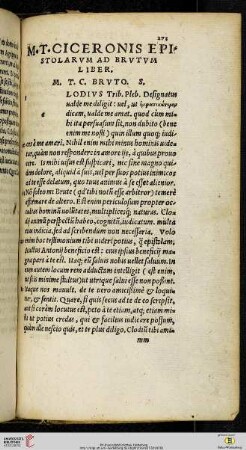 273
M. T. CICERONIS EPI
STOLARVM AD BRVTVM
LIBER.
M. T. C. BRVTO. S.
LODIVS Trib. Pleb. Designatus
ualde me diligit: uel, ut
dicam, ualde me amat. quod cum mi
hi ita persuasum sit, non dubito (bene
enim me nosti) quin illum quoq; iudi
ces à me amari. Nihil enim mihi minus hominis uide
tur, quàm non respondere in amore ijs, à quibus prouo
cere. Is mihi uisus est suspicari, nec sine magno qui
dem dolore, aliquid à suis, uel per suos potius iniquos
ad te esse delatum, quo tuus animus à se esset alienior.
nō soleo mi Brute (qd tibi notū esse arbitror) temere
affirmare de altero. Est enim periculosum propter occul
tas hominū uoluntates, multiplicesq; naturas. Clodi
ij animū perspectū habeo, cognitū, iudicatum. multa
eius indicia, sed ad scribendum non necessaria. Volo
enim hoc testimoniū tibi uideri potius, q̃ epistolam.
auctus Antonij beneficio est: eius ipsius beneficij ma
gna pars à te est. Itaq; eū saluis nobis uellet saluum. In
eum autem locum rem adductam intelligit (est enim,
ut scis minime stultus) ut utrique salui esse non possint.
Itaque nos mauult. de te uero amicissimè & loqui
tur, & sentit. Quare, si quis secus ad te de eo scripsit,
aut si coram locutus est, peto à te etiam, atq; etiam mi
hi ut potius credas, qui & facilius iudicare possum,
quàm ille nescio quis, et te plus diligo. Clodiū tibi ami
mm